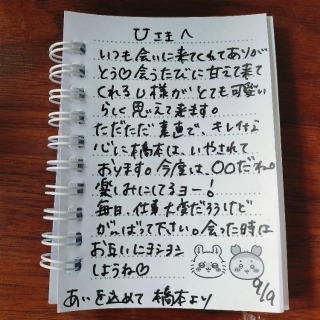 U様へ
いつも会いに来てくれてありが
とう♡会うたびに甘えて来て
くれるU様がとても可愛い
らしく思えて来ます。
ただただ素直で、キレイな
心に橋本は、いやされて
おります。今度は、〇〇だね。
楽しみにしてるヨー!
毎日、仕事大変だろうけど
がんばって下さい。会った時は
お互いにヨシヨシ
しようね♡
あいを込めて 橋本より
9/9